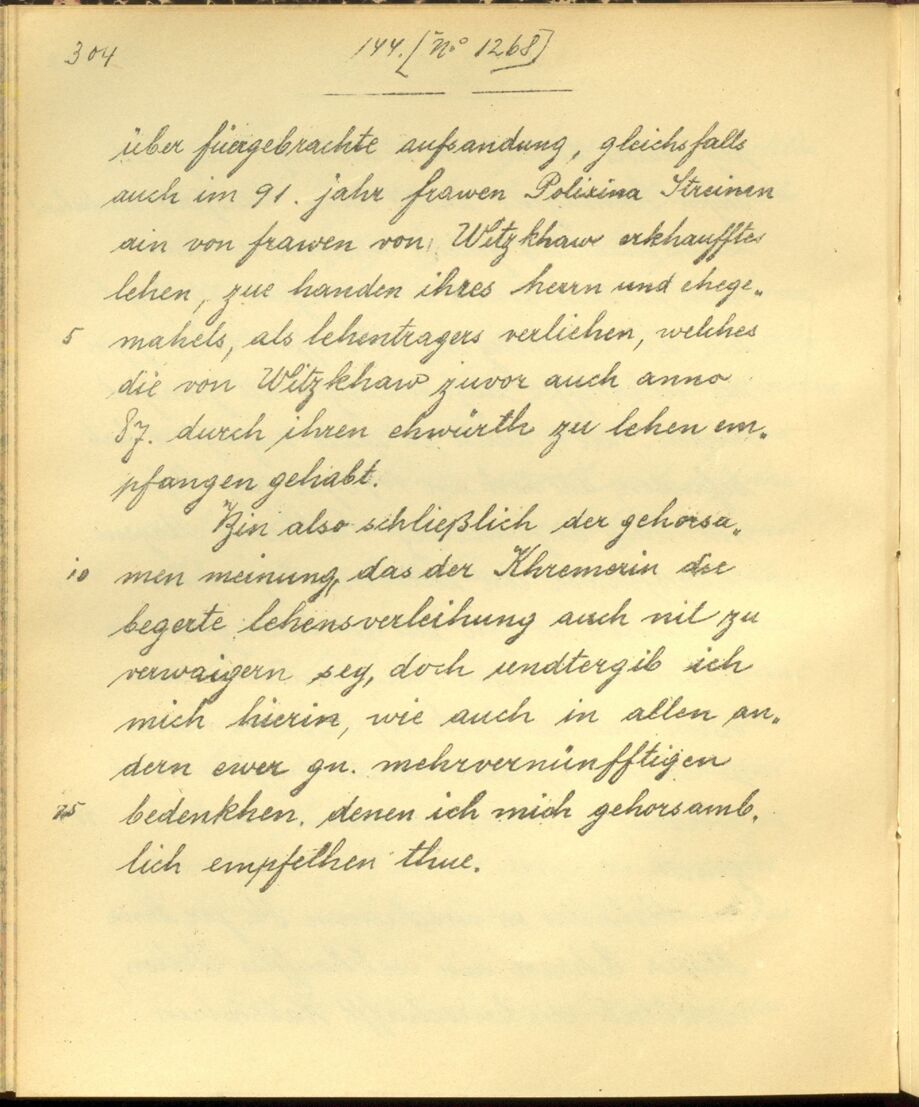 304
144. [No 1268]
über füergebrachte aufsandung, gleichsfalls
auch im 91. jahr frawen Polixina Streinen
ain von frawen von Witzkhaw erkhaufftes
lehen, zue handen ihres herrn und ehege„
5 mahels, als lehentragers verliehen, welches
die von Witzkhaw zuvor auch anno
87. durch ihren ehwürth zu lehen em„
pfangen gehabt.
Bin also schließlich der gehorsa„
10 men meinung, das der Khremerin die
begerte lehensverleihung auch nit zu
verwaigern sey, doch undtergib ich
mich hierin, wie auch in allen an„
dern ewer gn. mehrvernünfftigen
15 bedenkhen, denen ich mich gehorsamb„
lich empfelhen thue.